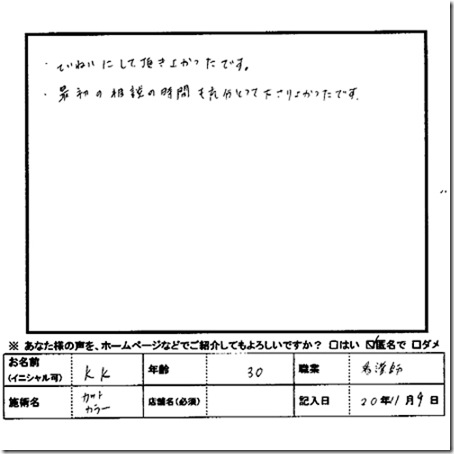 ・ていねいにして頂きよかったです。
・最初の相談の時間も充分とって下さりよかったです。
※ あなた様の声を、ホームページなどでご紹介してもよろしいですか？ □はい ☑匿名で □ダメ
お名前 (イニシャル可) KK 年齢 30 職業
施術名 カット カラー 店舗名(必須) 記入日 20年11月9日